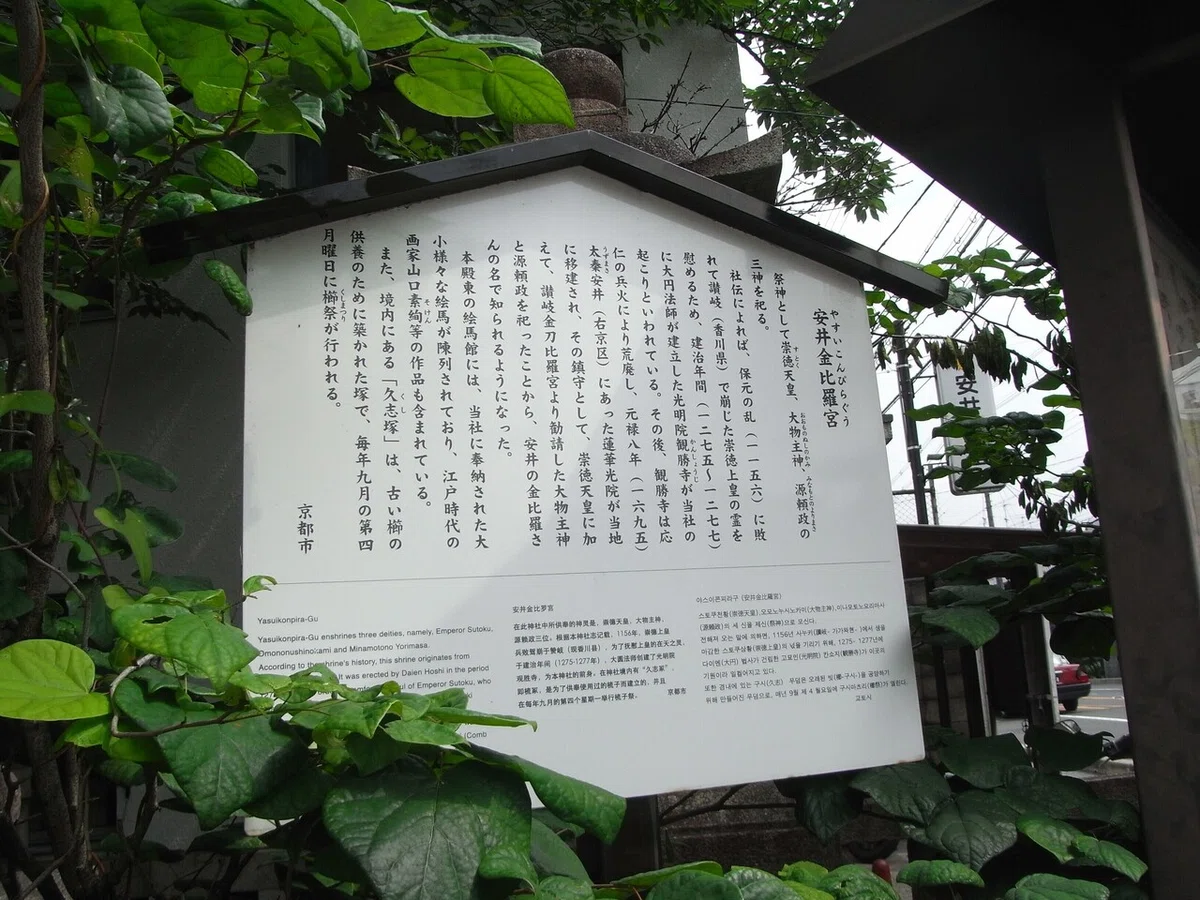 やすいこんぴらぐう
安井金比羅宮
祭神として崇徳天皇、大物主神、源頼政の
三神を祀る。
社伝によれば、保元の乱（一一五六）に敗
れて讃岐（香川県）で崩じた崇徳上皇の霊を
慰めるため、建治年間（一二七五〜一二七七）
に大円法師が建立した光明院観勝寺が当社の
起こりといわれている。その後、観勝寺は応
仁の兵火により荒廃し、元禄八年（一六九五）
太秦安井（右京区）にあった蓮華光院が当地
に移建され、その鎮守として、崇徳天皇に加
えて、讃岐金刀比羅宮より勧請した大物主神
と源頼政を祀ったことから、安井の金比羅さ
んの名で知られるようになった。
本殿東の絵馬館には、当社に奉納された大
小様々な絵馬が陳列されており、江戸時代の
画家山口素絢等の作品も含まれている。
また、境内にある「久志塚」は、古い櫛の
供養のために築かれた塚で、毎年九月の第四
月曜日に櫛祭が行われる。
京都市
Yasuikonpira-Gu
Yasuikonpira-Gu enshrines three deities, namely, Emperor Sutoku,
Omononushinokami and Minamotono Yorimasa.
According to the shrine's history, this shrine originates from
It was erected by Daien Hoshi in the period
of Emperor Sutoku, who
(Comb
安井金比罗宫
在此神社中所供奉的神灵是，崇德天皇、大物主神、
源赖政三位。根据本神社志记载，1156年，崇德上皇
兵败驾崩于赞岐（现香川县），为了抚慰上皇的在天之灵，
于建治年间（1275-1277年），大圆法师创建了光明院
观胜寺，为本神社的前身。在神社境内有“久志冢”，
即梳冢，是为了供奉使用过的梳子而建立的，并且
在每年九月的第四个星期一举行梳子祭。
京都市
야스이콘피라구 (安井金比羅宮)
스토쿠천황(崇徳天皇),오모노누시노카미(大物主神),미나모토노요리마사
(源頼政)의 세 신을 제신(祭神)으로 모신다.
전해져 오는 말에 의하면, 1156년 사누키(讃岐・가가와현・)에서 생을
마감한 스토쿠상황(崇徳上皇)의 넋을 기리기 위해, 1275- 1277년에
다이엔(大円) 법사가 건립한 고묘인(光明院) 칸쇼지(観勝寺)가 이곳의
기원이라 일컬어지고 있다.
또한 경내에 있는 구시(久志) 무덤은 오래된 빗(櫛-구시-)을 공양하기
위해 만들어진 무덤으로, 매년 9월 제 4 월요일에 구시마츠리(櫛祭)가 열린다.
교토시
安井